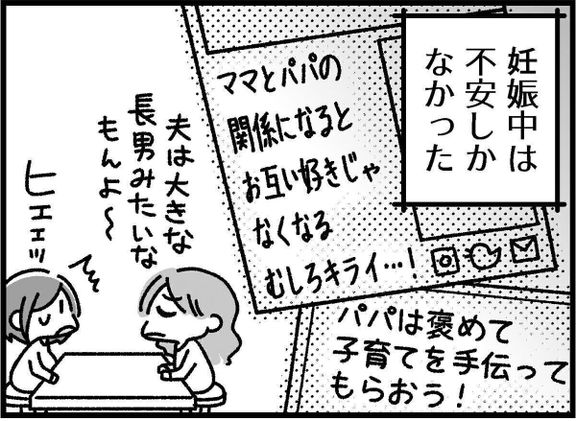 妊娠中は
不安しか
なかった
ママとパパの
関係になると
お互い好きじゃ
なくなる
むしろキライ…!
パパは褒めて
子育てを手伝って
もらおう!
夫は大きな
長男みたいな
もんよ～
ヒエエッ